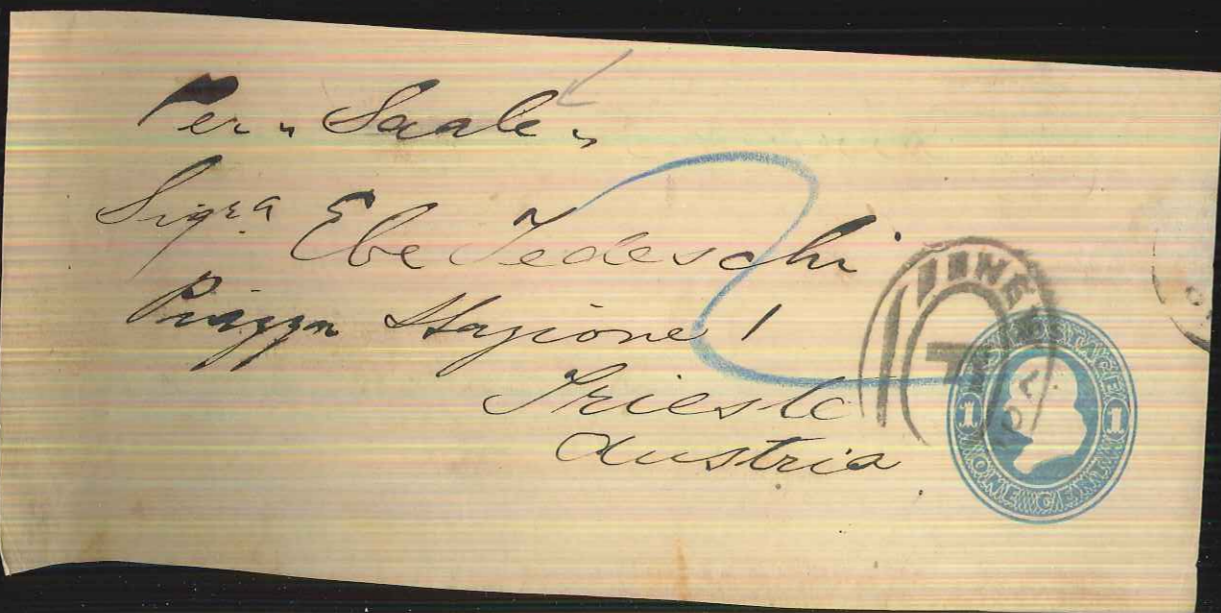 Per „Saale"
Sigra Ebe Tedeschi
Piazza Stazione 1
Trieste
Austria
U.S. POSTAGE
1 1
ONE CENT
NEW
T